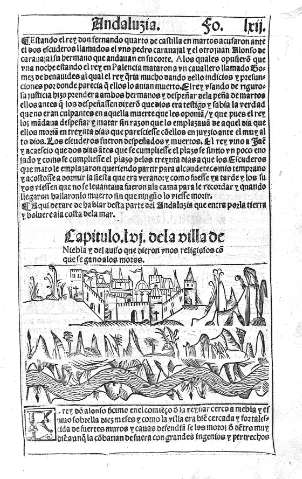 Andaluzia. Fo. lxij.
Estando el rey don fernando quarto de castilla en martos acusaron ante
el dos escuderos llamados el vno pedro carauajal y el otro juan Alonso de
carauajal su hermano que andauan en su corte. A los quales
vna noche estando el rey en Palencia mataron a vn cauallero llamado Gomez
de benauides al qual el rey q̃ria mucho dando dello indicios y presun
ciones por donde parecia q̃ ellos lo auian muerto. El rey vsando de riguro
sa justicia hizo prender a ambos hermanos y despeñar dela peña de martos
ellos antes q̃ los despeñassen dixerõ que dios era testigo y sabia la verdad
que no eran culpantes en aquella muerte que les oponiã / y que pues el rey
los mãdaua despeñar y matar sin razon que lo emplazauã de aquel dia que
ellos moriã en treynta dias que pareciesse cõ ellos en juyzio ante el muy al
to dios. Los escuderos fueron despeñados y muertos. El rey vino a Jaẽ
y acaescio que dos dias ãtes que se cumpliesse el plazo se sintio vn poco eno
jado y como se cumpliesse el plazo delos treynta dias a que los Escuderos
que mato le emplazaron queriendo partir para alcaudete comio temprano
y acostosse a dormir la siesta que era verano y como fuesse ya tarde y los su
yos viessen que no se leuantaua fueron a la cama para le recordar y quando
llegaron hallaronlo muerto sin que ninguno lo viesse morir.
Aqui dexare de hablar desta parte del Andaluzia que entre por la tierra
y boluere a la costa dela mar.
Capitulo. lvj. dela villa de
Niebla y del auiso que dieron vnos religiosos cõ
que se gano a los moros.
El rey dõ alonso decimo en el comiẽço d̃ su reynar cerco a niebla y es
tuuo sobre ella diez meses y como la villa era biẽ cercada y fortale
cida de fuertes muros y cauas defendiã se los moros d̃ dẽtro muy
biẽ aunq̃ la cõbatian de fuera con grandes ingenios y pertrechos